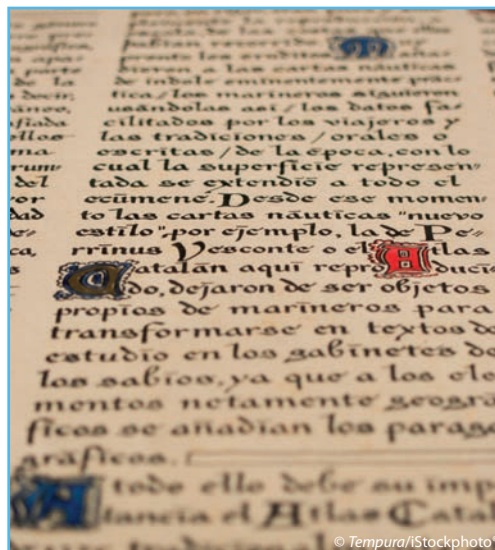 parte
de la
decir;
afiada
ellos
ma
del
or
dad
ca,
habían recorrido. T
pronto los eruditos
dieron a las cartas náuticas
de índole eminentemente prác-
tica/los marineros siguieron
usándolas así/los datos fa-
cilitados por los viajeros y
las tradiciones/orales o
escritas/de la época, con lo
cual la superficie represen-
tada se extendió a todo el
ecúmene. Desde ese momen-
to las cartas náuticas "nuevo
estilo", por ejemplo, la de Pe-
rrinus Vesconte o el Atlas
Catalán aquí reproducido
do, dejaron de ser objetos
propios de marineros para
transformarse en textos de
estudio en los gabinetes de
los sabios, ya que a los ele
mentos netamente geográ
ficos se añadían los parage
gráficos.
A todo ello debe su imp
tancia el Atlas Catal
© Tempura/iStockphoto